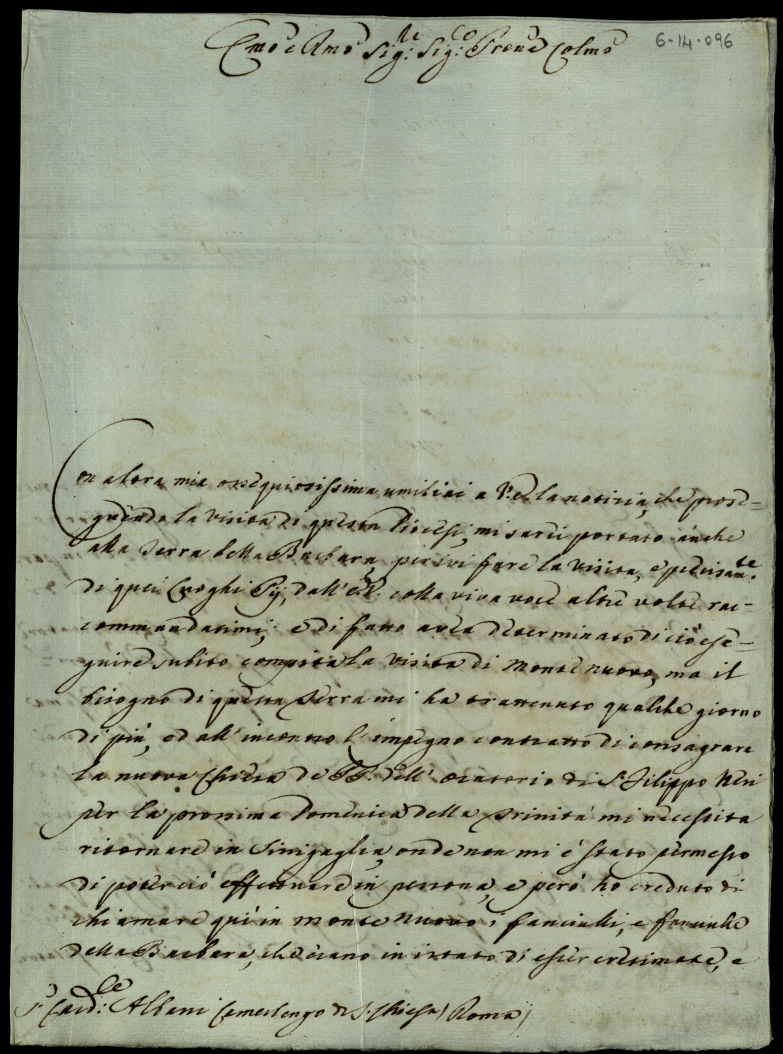 Emo e Rmo Sig:re Sig:re Prone Colmo
6-14-096
Con altra mia ossequiosissima umiliai a V. E. la notizia, che prose=
guendo la Visita di questa Diocesi, mi sarei portato anche
alla Terra della Barbara, per ivi fare la Visita, e precisamte
di quei Luoghi Pij, dall' E. V. colla viva voce altre volte rac=
commandatimi, e di fatto avea determinato di ciò ese=
guire subito compita la Visita di Monte nuovo, ma il
bisogno di questa Terra mi ha trattenuto qualche giorno
di più, ed all' incontro l' impegno contratto di consagrare
la nuova Chiesa de PP. dell' Oratorio di S. Filippo Neri
per la prossima Domenica della Trinità mi necessita
ritornare in Sinigaglia, onde non mi è stato permesso
di poter ciò effettuare in persona, e però ho creduto di
chiamare quì in Monte Nuovo i fanciulli, e fanciulle
della Barbara, che erano in istato di esser cresimate, e
Sr Card:le Albani Camerlengo di S. Chiesa / Roma /